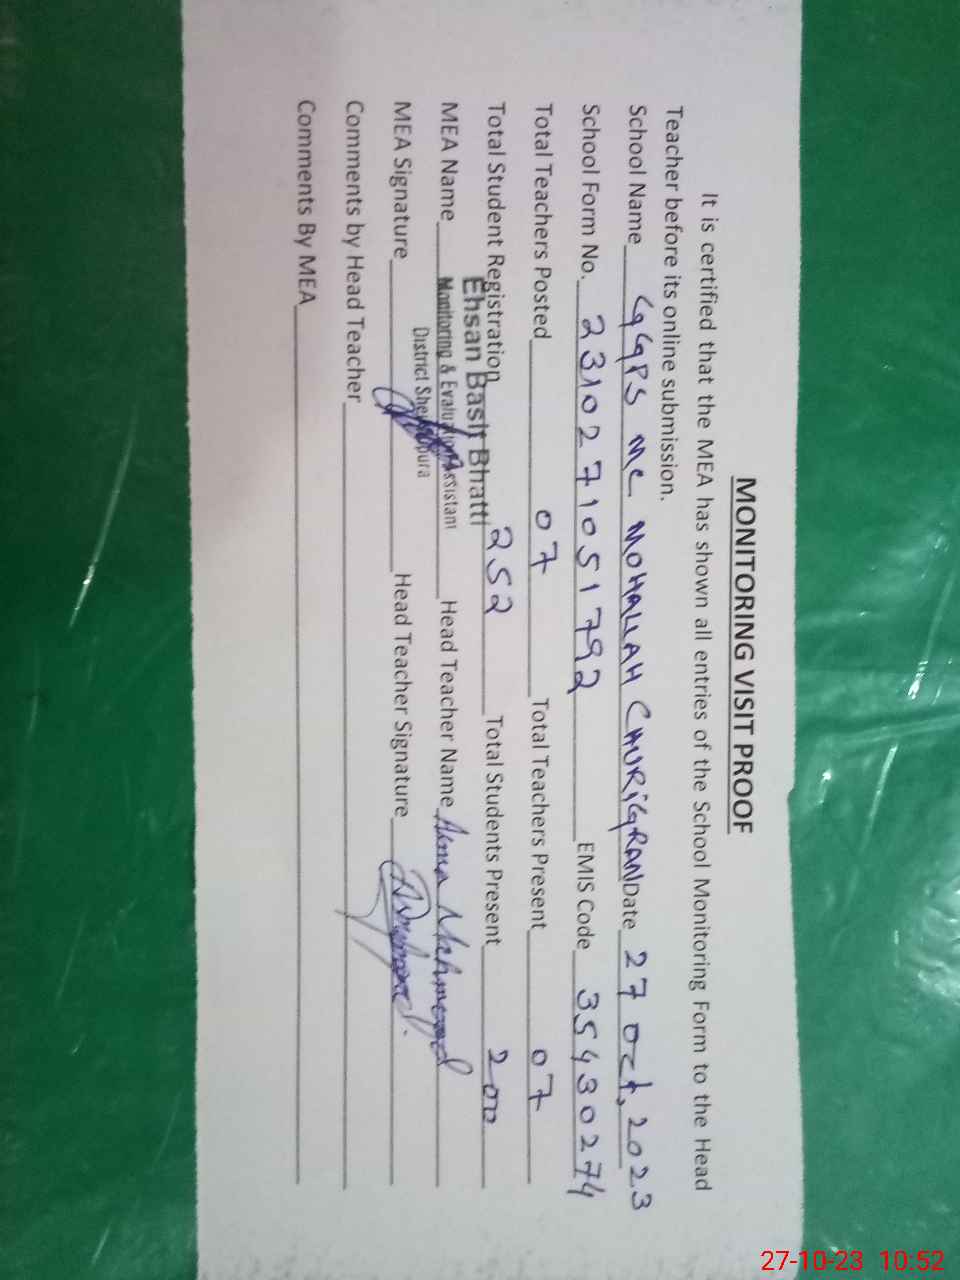 MONITORING VISIT PROOF
It is certified that the MEA has shown all entries of the School Monitoring Form to the Head
Teacher before its online submission.
School Name GGPS MC MOHALLAH CHURiGRAN Date 27 Oct, 2023
School Form No. 2310271051792 EMIS Code 35430274
Total Teachers Posted 07 Total Teachers Present 07
Total Student Registration 252 Total Students Present 200
Ehsan Basit Bhatti
MEA Name Monitoring & Evaluation Assistant Head Teacher Name Asma Mehmood
District Sheikhupura
MEA Signature Head Teacher Signature
Comments by Head Teacher
Comments By MEA
27-10-23 10:52